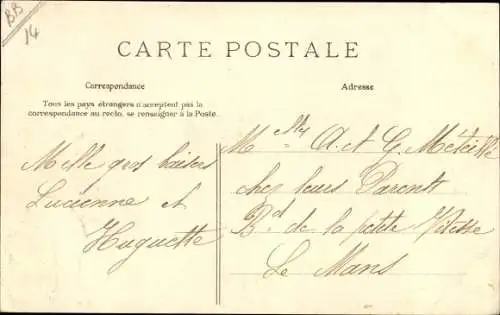 BB
14
CARTE POSTALE
Correspondance
Adresse
Tous les pays étrangers n'acceptent pas la
correspondance au recto, se renseigner à la Poste.
Mille gros baisers
Lucienne et
Huguette
M elles A. et G.
chez leurs Parents
B.d de la petite Vitesse
Le Mans